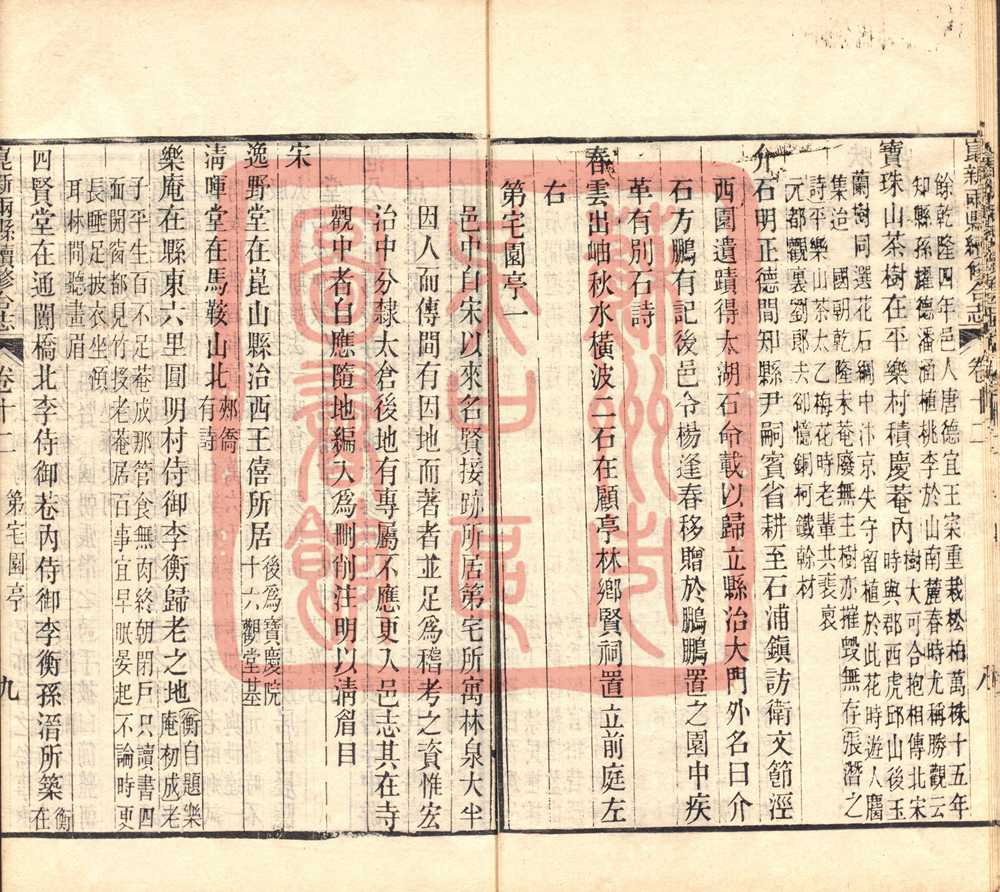 崑新兩縣續修合志 卷十二 八
餘乾隆四年邑人唐德宜王宋重栽松柏萬株十五年
知縣孫耀德潘涵植桃李於山南麓春時尤稱勝觀云
寶珠山茶樹在平樂村積慶菴內
樹大可合抱相傳北宋
時與郡西虎邱山後玉
蘭樹同選花石綱中汴京失守留植於此花時遊人麕
集迨 國朝乾隆末菴廢無主樹亦摧毀無存張潛之
詩平樂山茶太乙梅花時老輩共裴裒
元都觀裏劉郎去卻憶銅柯鐵榦材
介石明正德間知縣尹嗣賓省耕至石浦鎮訪衛文節涇
西園遺蹟得太湖石命載以歸立縣治大門外名曰介
石方鵬有記後邑令楊逢春移贈於鵬鵬置之園中疾
革有別石詩
春雲出岫秋水橫波二石在顧亭林鄉賢祠置立前庭左
右
第宅園亭一
邑中自宋以來名賢接跡所居第宅所寓林泉大半
因人而傳間有因地而著者並足爲稽考之資惟宏
治中分隸太倉後地有專屬不應更入邑志其在寺
觀中者自應隨地編入爲刪削注明以清眉目
宋
逸野堂在崑山縣治西王僖所居
後爲寶慶院
十六觀堂基
清暉堂在馬鞍山北
郟僑
有詩
樂庵在縣東六里圓明村侍御李衡歸老之地
衡自題樂
庵初成老
子平生百不足菴成那管食無肉終朝閉戸只讀書四
面開窗都見竹投老菴居百事宜早眠晏起不論時更
長睡足披衣坐傾
耳林間聽畫眉
四賢堂在通闤橋北李侍御巷內侍御李衡孫潛所築
衡
在
崑新兩縣續修合志 卷十二 第宅園亭 九
蘇州大區圖書館